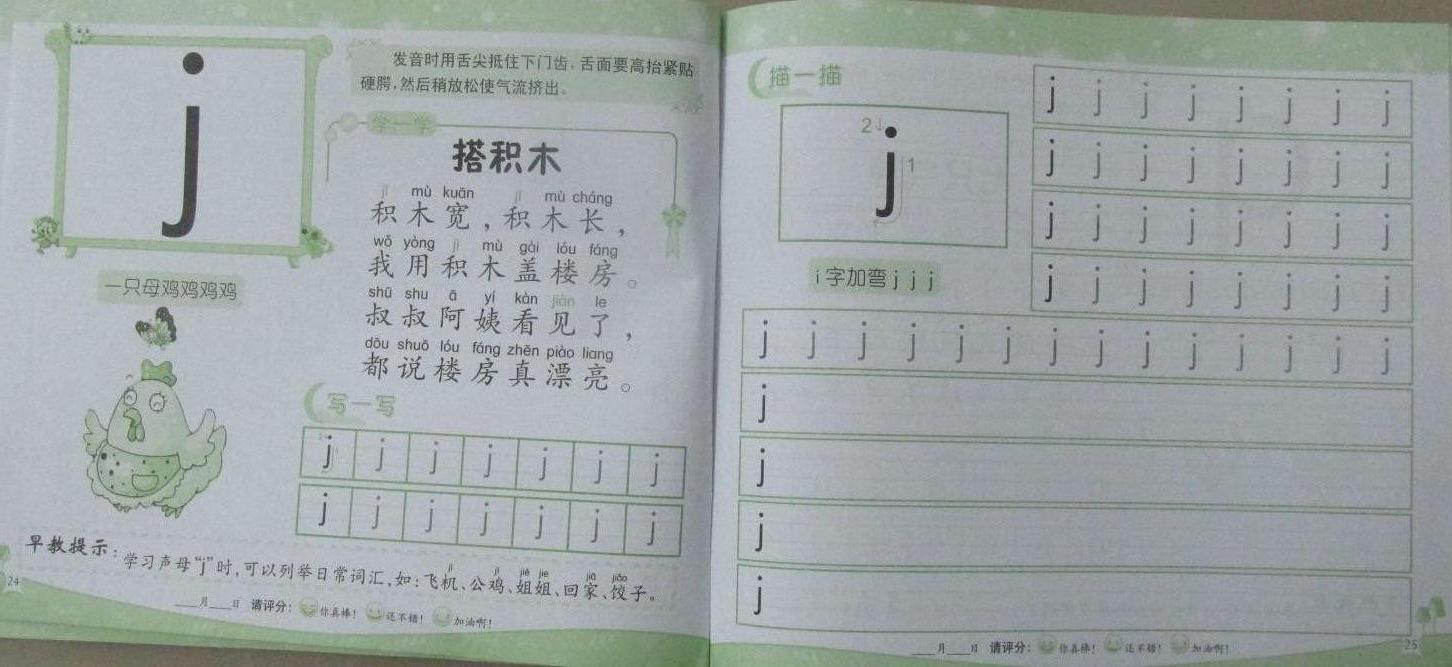 j
发音时用舌尖抵住下门齿，舌面要高抬紧贴
硬腭，然后稍放松使气流挤出。
学一学
搭积木
jī mù kuān jī mù cháng
积木宽，积木长，
wǒ yòng jī mù gài lóu fáng
我用积木盖楼房。
shū shu ā yí kàn jiàn le
叔叔阿姨看见了，
dōu shuō lóu fáng zhēn piào liang
都说楼房真漂亮。
一只母鸡鸡鸡鸡
写一写
j j j j j j j
j j j j j j j
jī jī jiě jie jiā jiǎo
早教提示：学习声母“j”时，可以列举日常词汇，如：飞机、公鸡、姐姐、回家、饺子。
24
月 日 请评分： 你真棒！ 还不错！ 加油啊！
描一描
2 j 1
i字加弯jjj
j j j j j j j j
j j j j j j j j
j j j j j j j j
j j j j j j j j
j j j j j j j j j j j j j j
j
j
j
j
月 日 请评分： 你真棒！ 还不错！ 加油啊！
25